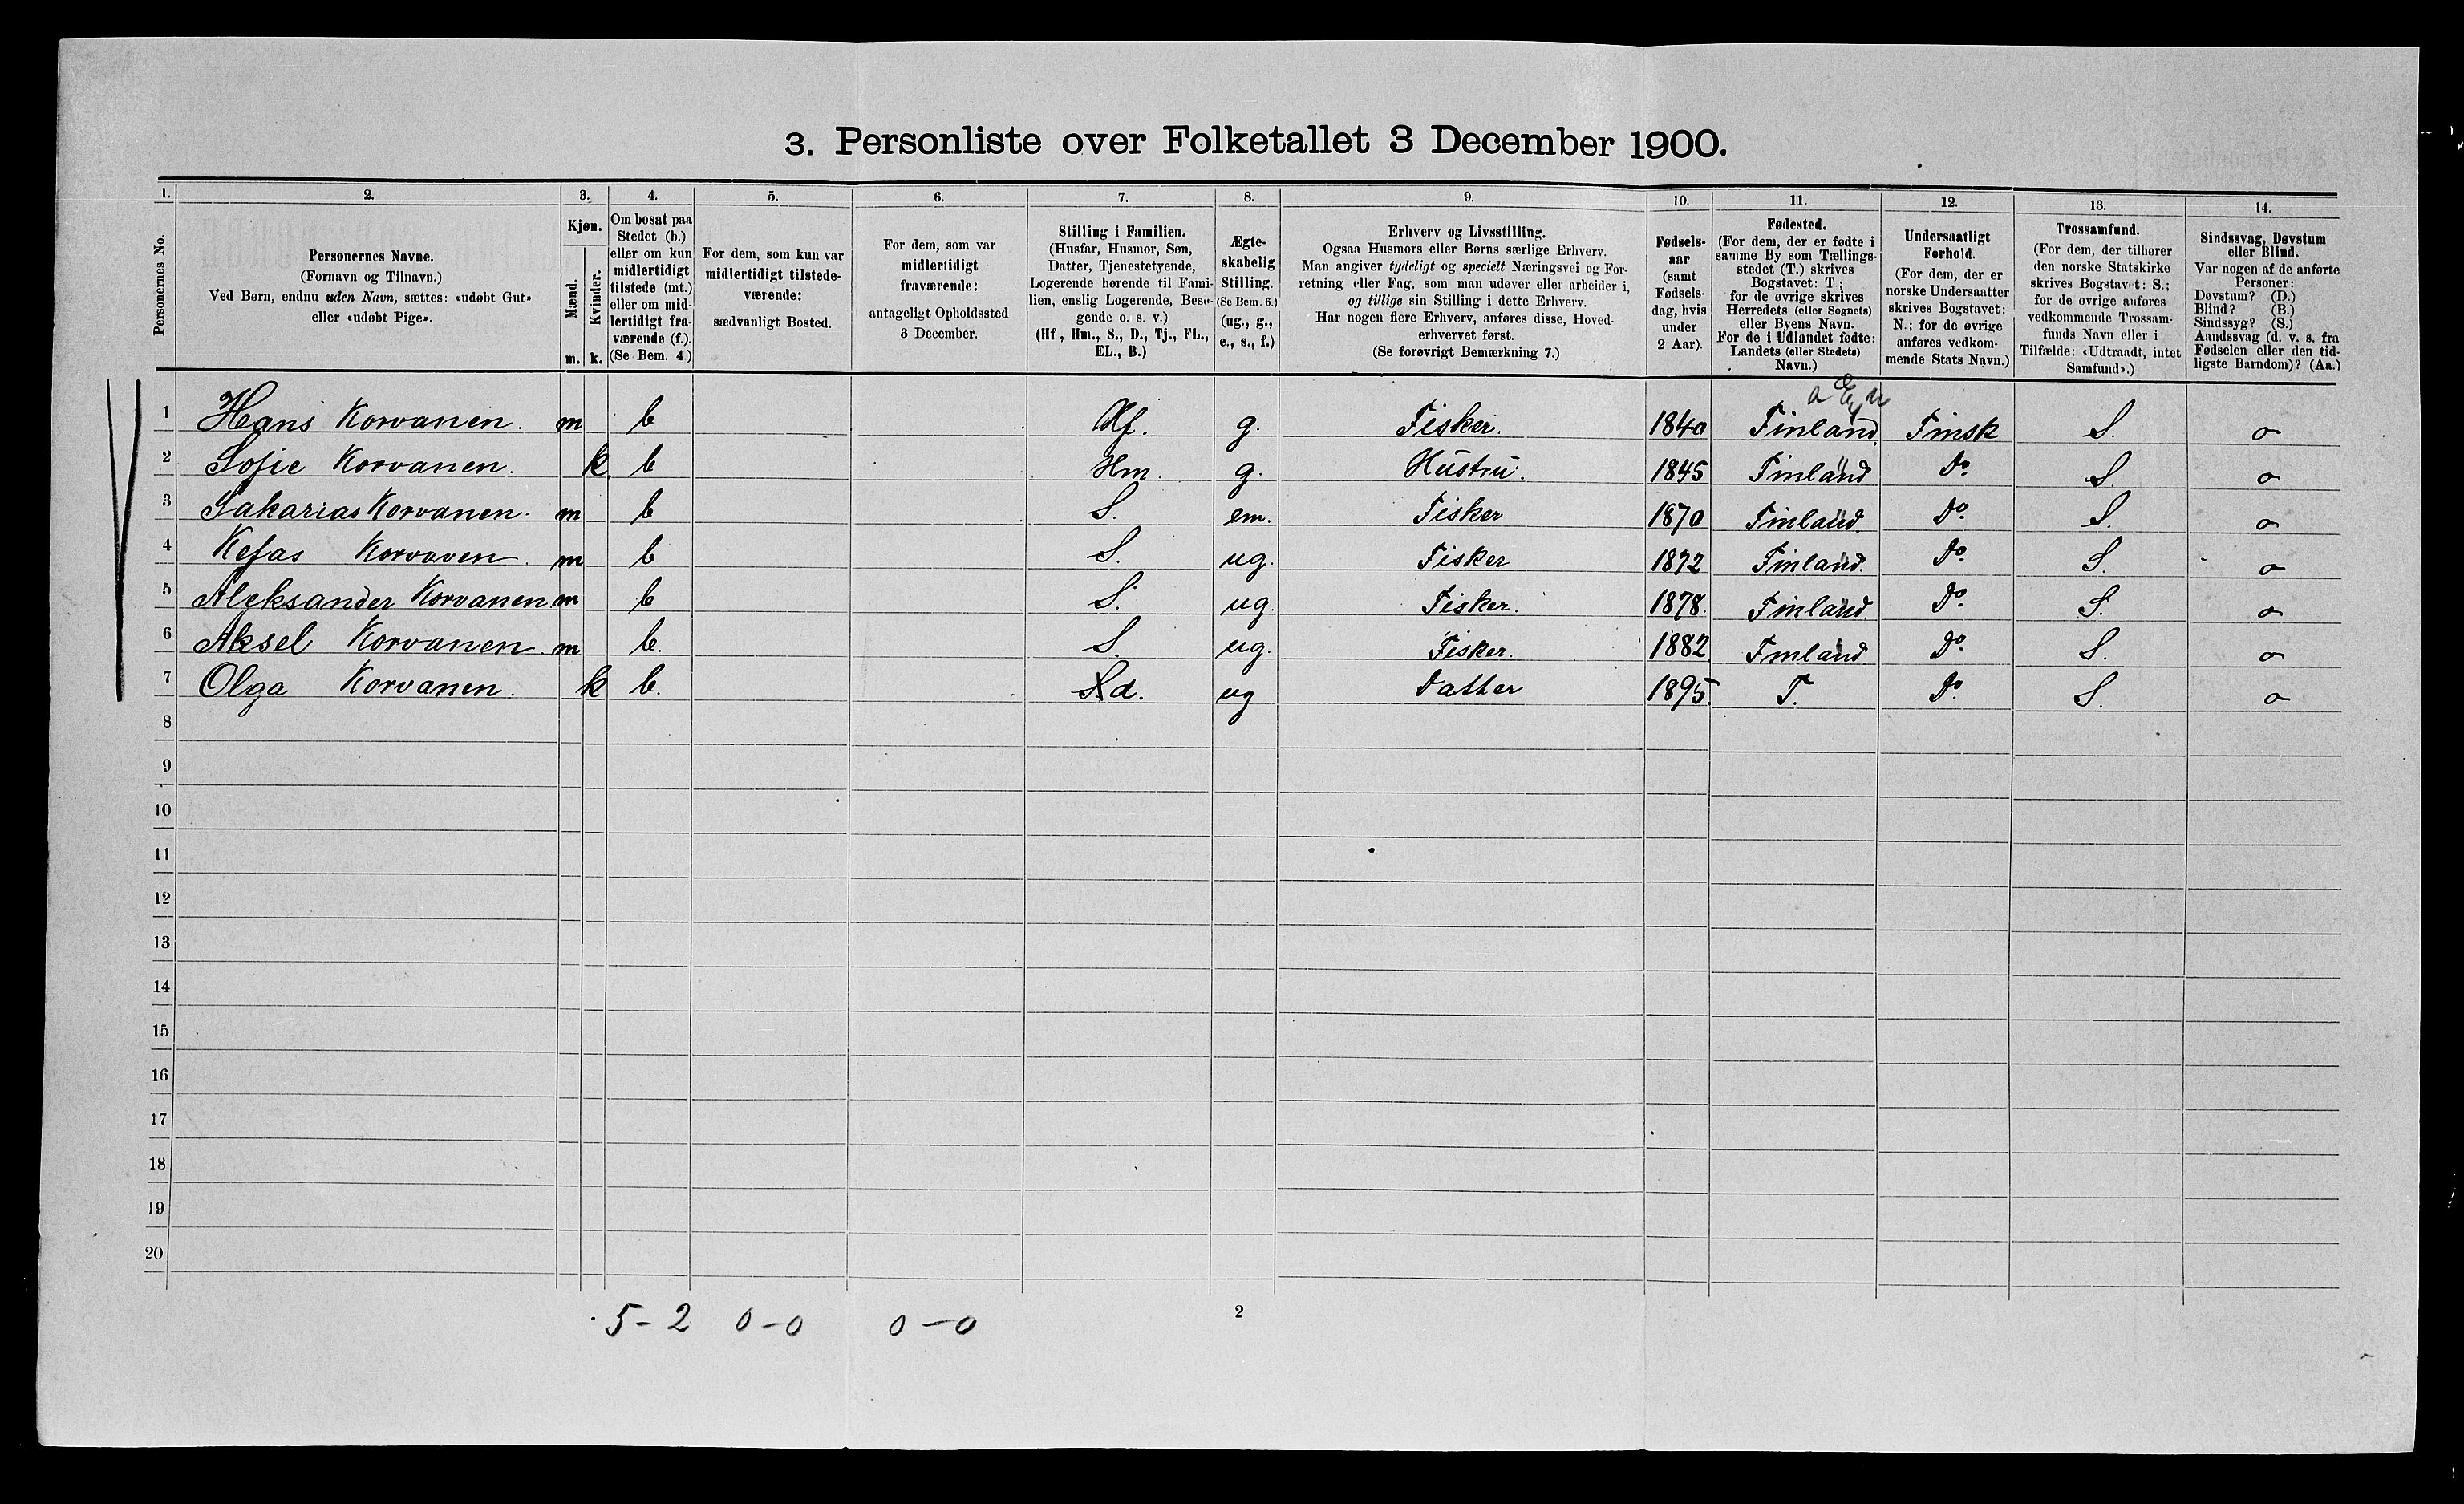 3. Personliste over Folketallet 3 December 1900.
1. 2. 3. 4. 5. 6. 7. 8. 9. 10. 11. 12. 13. 14.
Personernes No.
Personernes Navne.
(Fornavn og Tilnavn.)
Ved Børn, endnu uden Navn, sættes: «udøbt Gut»
eller «udøbt Pige».
Kjøn.
Mænd.
Kvinder.
m. k.
Om bosat paa
Stedet (b.)
eller om kun
midlertidigt
tilstede (mt.)
eller om mid-
lertidigt fra-
værende (f.).
(Se Bem. 4.)
For dem, som kun var
midlertidigt tilstede-
værende:
sædvanligt Bosted.
For dem, som var
midlertidigt
fraværende:
antageligt Opholdssted
3 December.
Stilling i Familien.
(Husfar, Husmor, Søn,
Datter, Tjenestetyende,
Logerende hørende til Fami-
lien, enslig Logerende, Besø-
gende o. s. v.)
(Hf, Hm., S., D., Tj., FL.,
EL., B.)
Ægte-
skabelig
Stilling.
(Se Bem. 6.)
(ug., g.,
e., s., f.)
Erhverv og Livsstilling.
Ogsaa Husmors eller Børns særlige Erhverv.
Man angiver tydeligt og specielt Næringsvei og For-
retning eller Fag, som man udøver eller arbeider i,
og tillige sin Stilling i dette Erhverv.
Har nogen flere Erhverv, anføres disse, Hoved-
erhvervet først.
(Se forøvrigt Bemærkning 7.)
Fødsels-
aar
(samt
Fødsels-
dag, hvis
under
2 Aar).
Fødested.
(For dem, der er fødte i
samme By som Tællings-
stedet (T.) skrives
Bogstavet: T;
for de øvrige skrives
Herredets (eller Sognets)
eller Byens Navn.
For de i Udlandet fødte:
Landets (eller Stedets)
Navn.)
Undersaatligt
Forhold.
(For dem, der er
norske Undersaatter
skrives Bogstavet:
N.; for de øvrige
anføres vedkom-
mende Stats Navn.)
Trossamfund.
(For dem, der tilhører
den norske Statskirke
skrives Bogstavet: S.;
for de øvrige anføres
vedkommende Trossam-
funds Navn eller i
Tilfælde: «Udtraadt, intet
Samfund».)
Sindssvag, Døvstum
eller Blind.
Var nogen af de anførte
Personer:
Døvstum? (D.)
Blind? (B.)
Sindssyg? (S.)
Aandssvag (d. v. s. fra
Fødselen eller den tid-
ligste Barndom)? (Aa.)
1 Hans Korvanen. m b Hf. g. Fisker. 1840 Finland. Finsk S. o
2 Sofie Korvanen. k. b Hm. g. Hustru. 1845 Finland Do. S. o
3 Sakarias Korvanen. m b S. em. Fisker 1870 Finland. Do. S. o
4 Kefas Korvaven. m b S. ug. Fisker 1872 Finland. Do. S. o
5 Aleksander Korvanen m b S. ug. Fisker. 1878. Finland. Do. S. o
6 Aksel Korvanen. m b. S. ug. Fisker. 1882. Finland. Do. S. o
7 Olga Korvanen. k b. S d. ug Datter 1895. T. Do. S. o
8
9
10
11
12
13
14
15
16
17
18
19
20
5 - 2 0 - 0 0 - 0
2